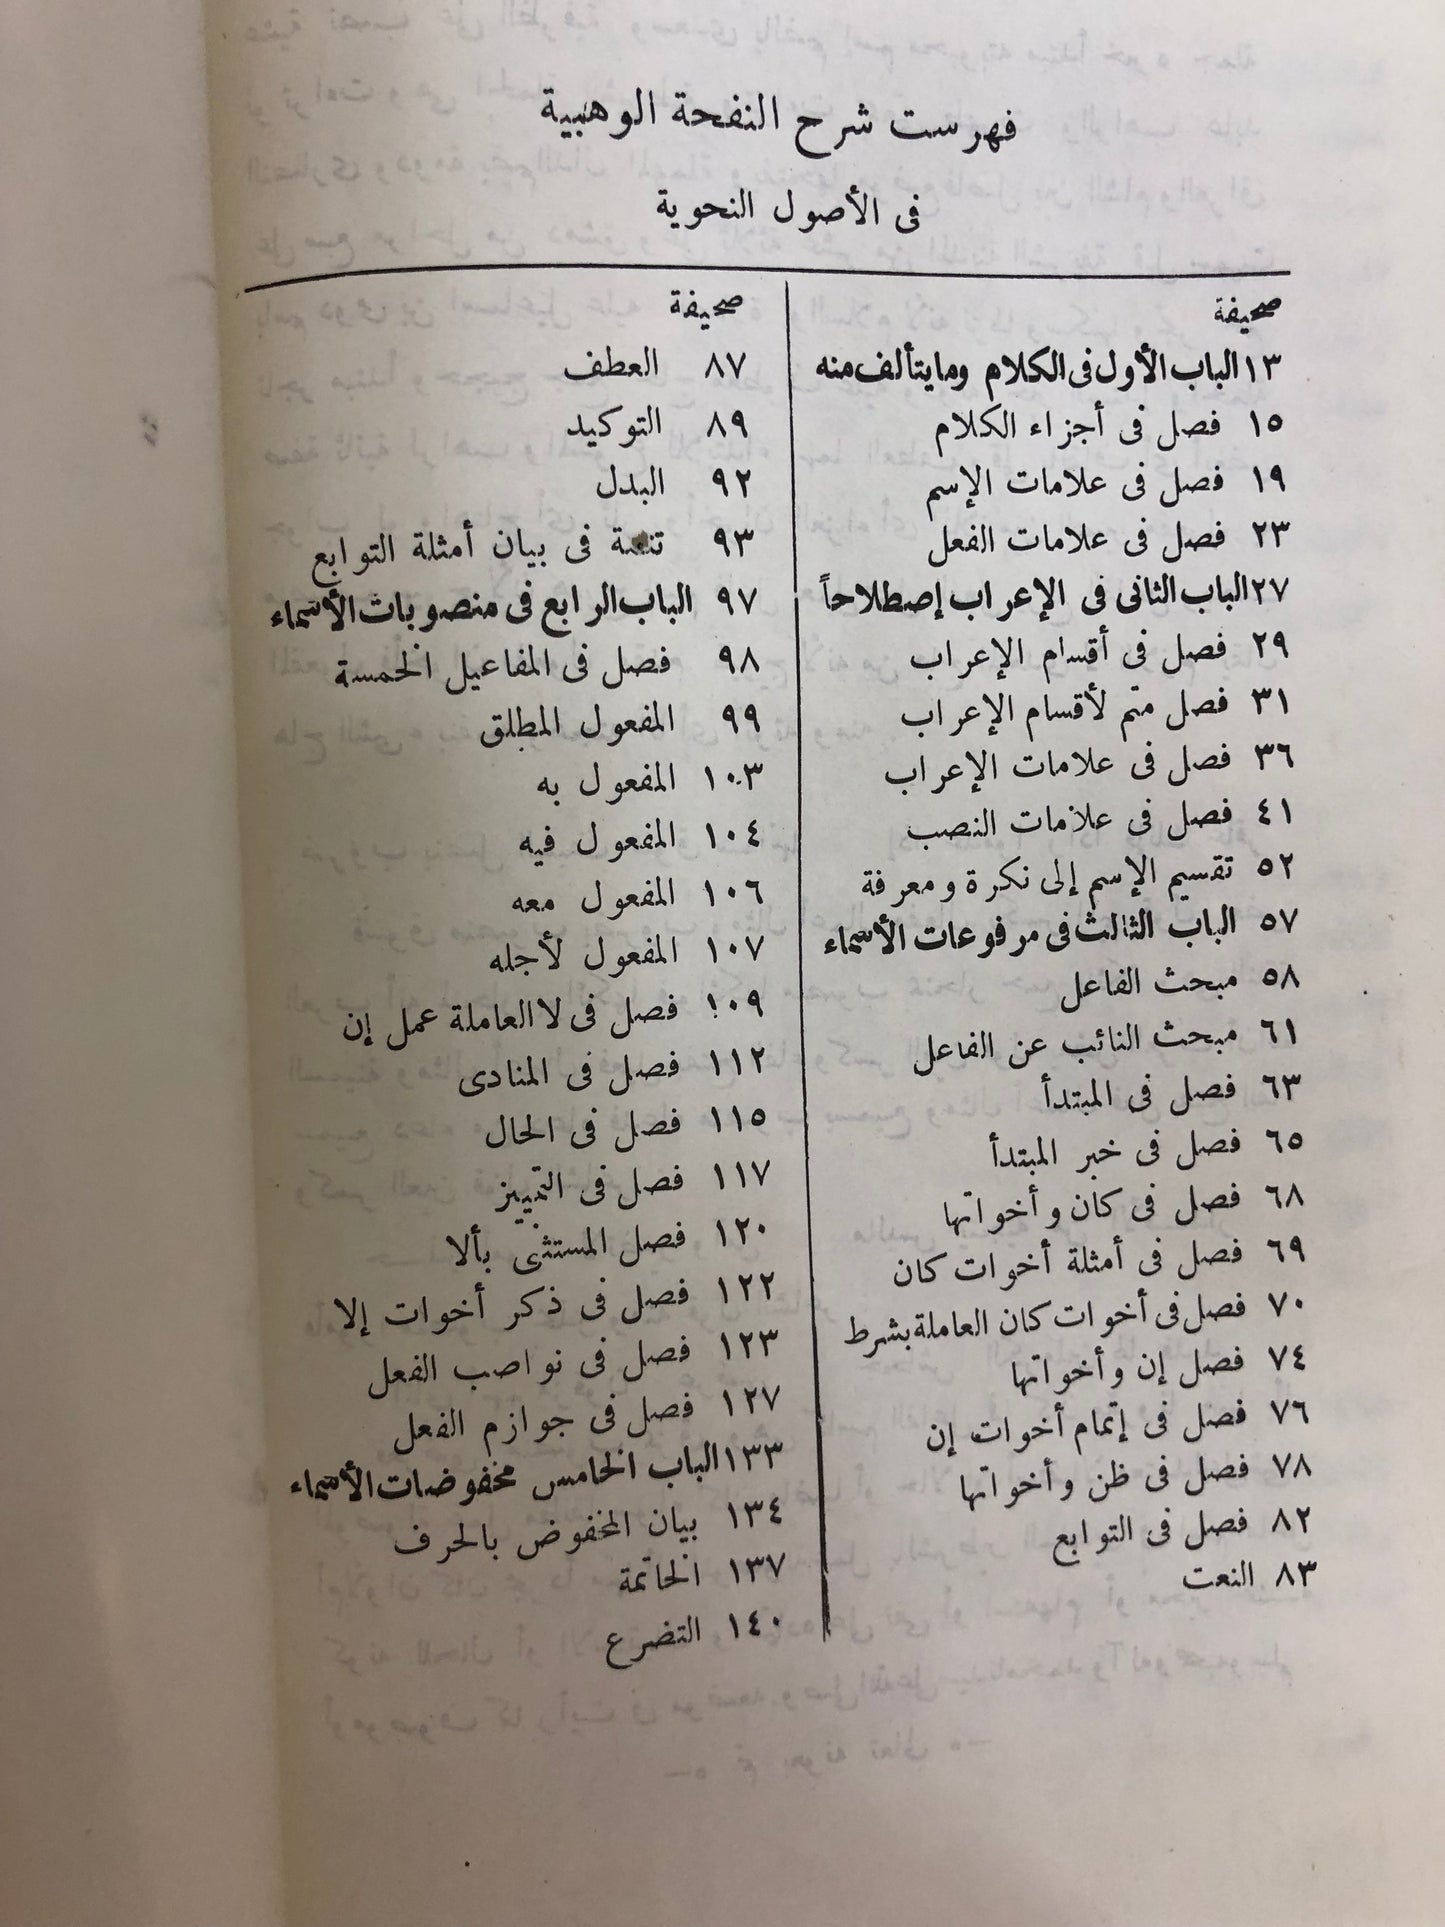 فهرست شرح النفحة الوهبية
فى الأصول النحوية
صحيفة
١٣ الباب الأول فى الكلام ومايتألف منه
١٥ فصل فى أجزاء الكلام
١٩ فصل فى علامات الإسم
٢٣ فصل فى علامات الفعل
٢٧ الباب الثانى فى الإعراب إصطلاحاً
٢٩ فصل فى أقسام الإعراب
٣١ فصل متم لأقسام الإعراب
٣٦ فصل فى علامات الإعراب
٤١ فصل فى علامات النصب
٥٢ تقسيم الإسم إلى نكرة ومعرفة
٥٧ الباب الثالث فى مرفوعات الأسماء
٥٨ مبحث الفاعل
٦١ مبحث النائب عن الفاعل
٦٣ فصل فى المبتدأ
٦٥ فصل فى خبر المبتدأ
٦٨ فصل فى كان وأخواتها
٦٩ فصل فى أمثلة أخوات كان
٧٠ فصل فى أخوات كان العاملة بشرط
٧٤ فصل إن وأخواتها
٧٦ فصل فى إتمام أخوات إن
٧٨ فصل فى ظن وأخواتها
٨٢ فصل فى التوابع
٨٣ النعت
صحيفة
٨٧ العطف
٨٩ التوكيد
٩٢ البدل
٩٣ تتمة فى بيان أمثلة التوابع
٩٧ الباب الرابع فى منصوبات الأسماء
٩٨ فصل فى المفاعيل الخمسة
٩٩ المفعول المطلق
١٠٣ المفعول به
١٠٤ المفعول فيه
١٠٦ المفعول معه
١٠٧ المفعول لأجله
١٠٩ فصل فى لا العاملة عمل إن
١١٢ فصل فى المنادى
١١٥ فصل فى الحال
١١٧ فصل فى التمييز
١٢٠ فصل المستثنى بألا
١٢٢ فصل فى ذكر أخوات إلا
١٢٣ فصل فى نواصب الفعل
١٢٧ فصل فى جوازم الفعل
١٣٣ الباب الخامس مخفوضات الأسماء
١٣٤ بيان المخفوض بالحرف
١٣٧ الخاتمة
١٤٠ التضرع